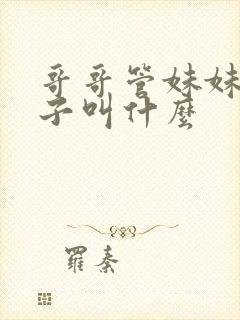 哥哥管妹妹
子叫什麼
羅秦